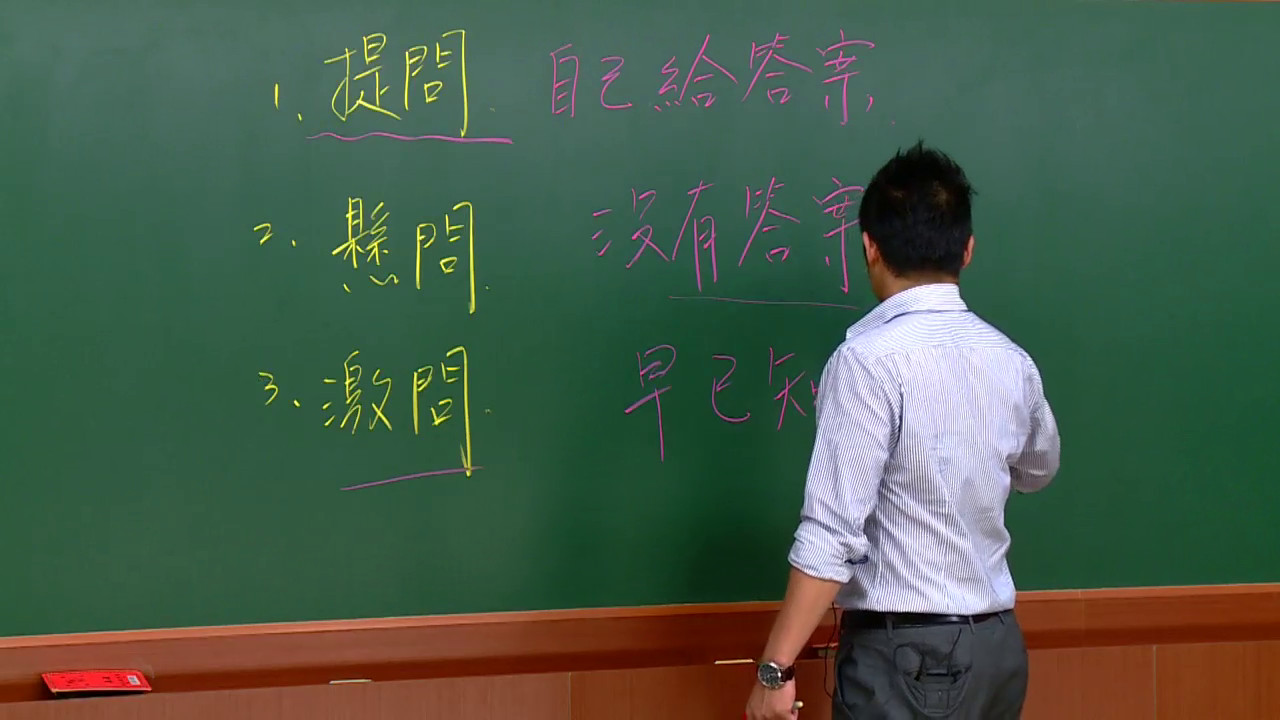 1、提問. 自己給答案.
2、懸問. 沒有答案
3、激問. 早已知